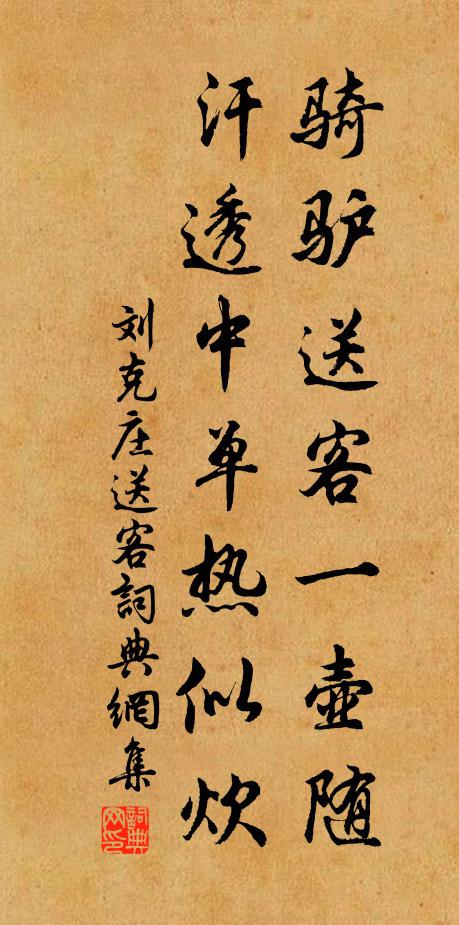 骑驴送客一壶随
汗透中单热似炊
刘克庄送客詞典網集
詞典网印